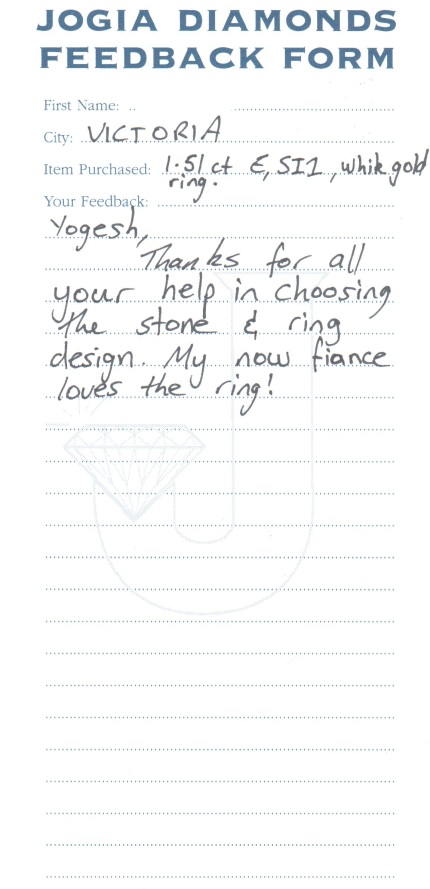 JOGIA DIAMONDS
FEEDBACK FORM
First Name:
City: VICTORIA
Item Purchased: 1.51 ct E, SI1, white gold
ring.
Your Feedback:
Yogesh,
Thanks for all
your help in choosing
the stone & ring
design. My now fiance
loves the ring!